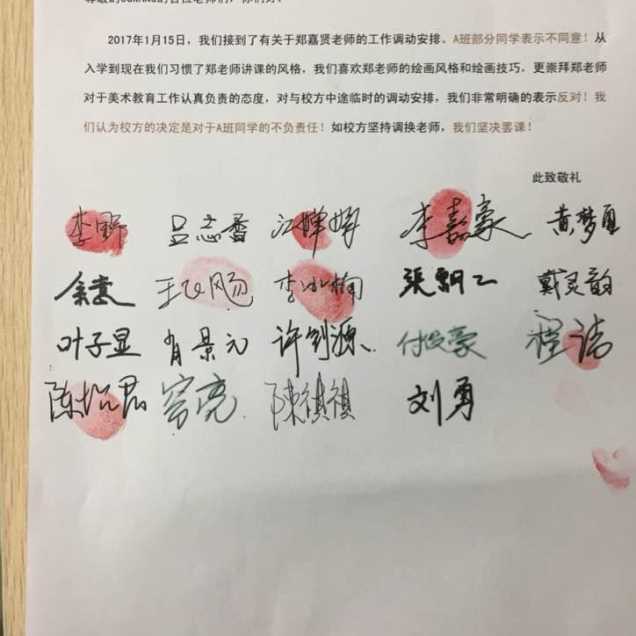 2017年1月15日，我们接到了有关于郑嘉贤老师的工作调动安排。A班部分同学表示不同意！从
入学到现在我们习惯了郑老师讲课的风格，我们喜欢郑老师的绘画风格和绘画技巧，更崇拜郑老师
对于美术教育工作认真负责的态度，对与校方中途临时的调动安排，我们非常明确的表示反对！我
们认为校方的决定是对于A班同学的不负责任！如校方坚持调换老师，我们坚决罢课！
此致敬礼
李野 吕志香 江婵婷 李嘉豪 黄梦圆
张飘飞 戴灵韵
叶子显 肖景元 许剑源 程洁
窦亮 陳祺祺 刘勇